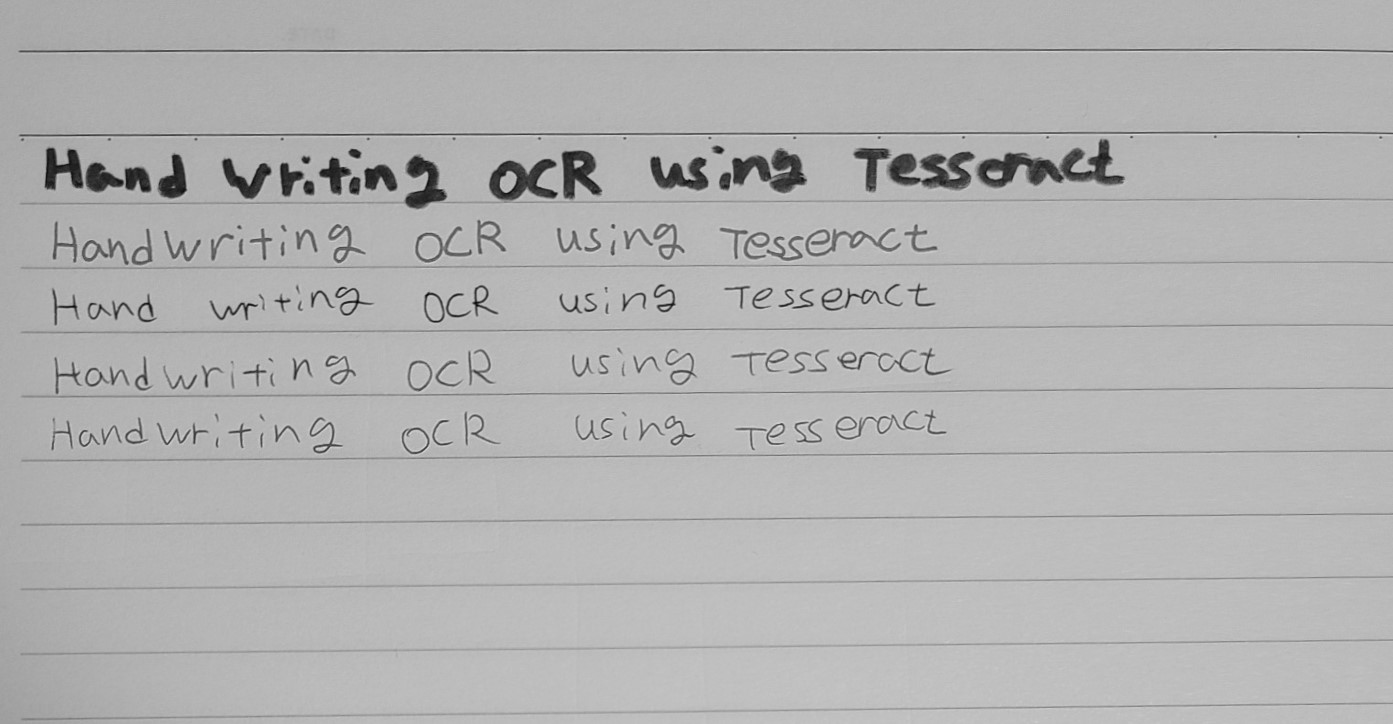 Hand writing OCR using Tesseract
Handwriting OCR using Tesseract
Hand writing OCR using Tesseract
Handwriting OCR using Tesseract
Handwriting OCR using Tesseract